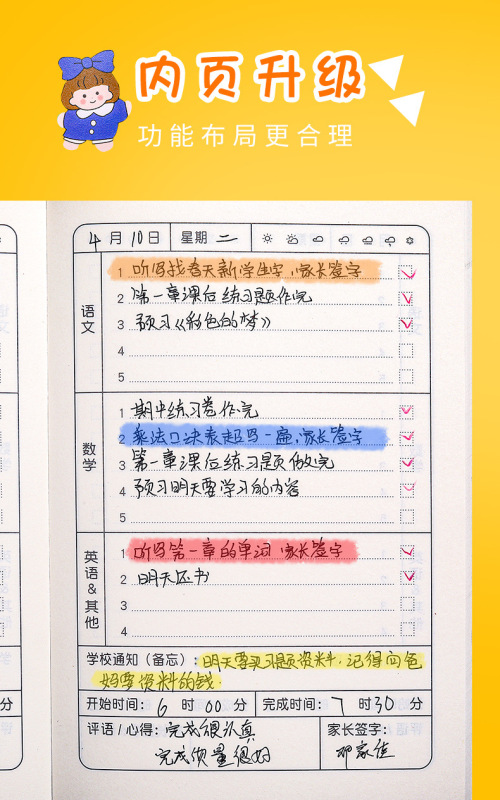 内页升级
功能布局更合理
4月10日 星期二
语文
1 听写找春天新学生字,家长签字
2 第一章课后练习题作完
3 预习《彩色的梦》
4
5
数学
1 期中练习卷作完
2 乘法口决表超写一遍,家长签字
3 第一章课后练习题做完
4 预习明天要学习的内容
5
英语&其他
1 听写第一章的单词,家长签字
2 明天还书
3
4
学校通知(备忘):明天要买习题资料,记得向爸
妈要资料的钱
开始时间:6时00分 完成时间:7时30分
评语/心得:完成很认真
完成质量很好
家长签字:
邓家佳